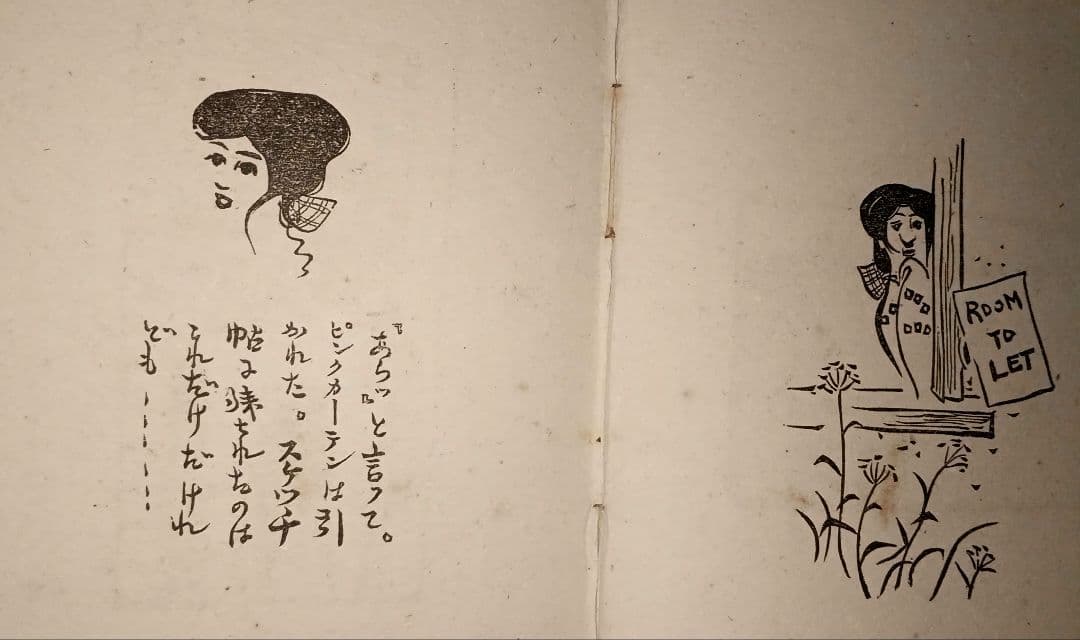 ROOM
TO
LET
『あらッ』と言つて。
ピンクカーテンは引
かれた。スケツチ
帖に残されたのは
それだけだけれ
ども－－－－－